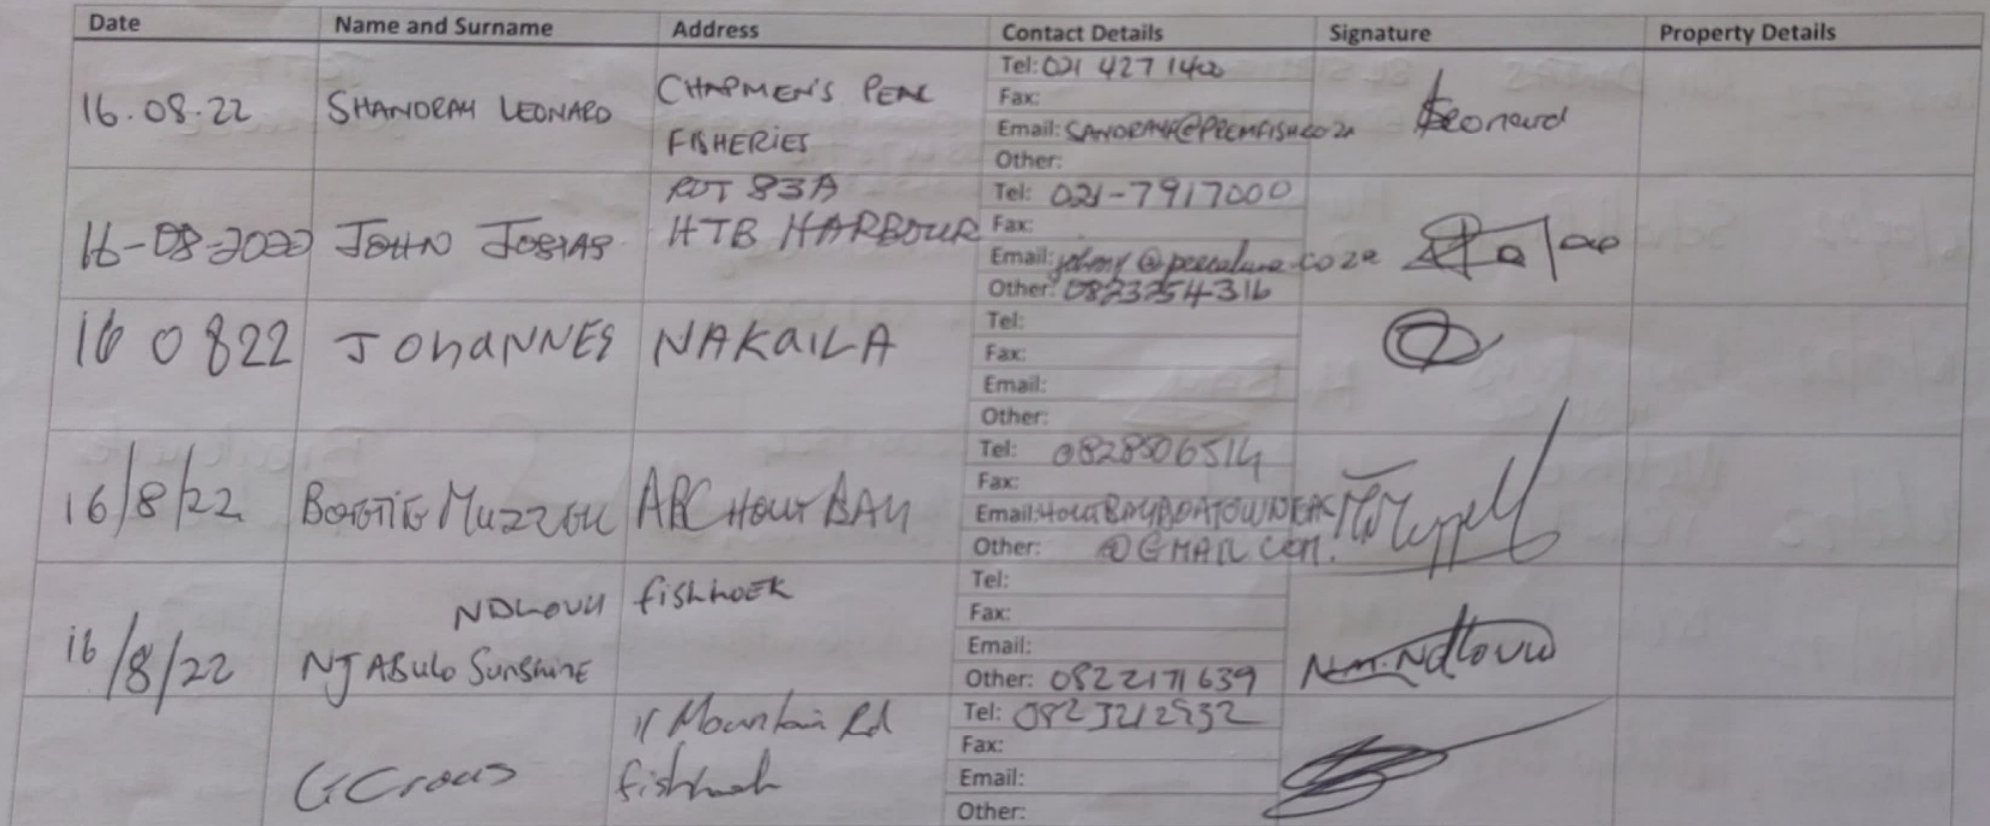 Date Name and Surname Address Contact Details Signature Property Details
16.08.22 SHANDRAH LEONARD CHAPMEN'S PEAK FISHERIES
Tel: 021 427 1400
Fax:
Email:
Other:
16-08-2022 JOHN JOSIAS 83A
HTB HARBOUR
Tel: 021-7917000
Fax:
Email: @ co za
Other: 0823254316
16 08 22 JOhANNES NAKAILA
Tel:
Fax:
Email:
Other:
16/8/22 HOUT BAY
Tel: 0828506514
Fax:
Email: HOUTBAYBOATOWNERS
Other: @GMAIL.COM.
16/8/22 NDLOVU fishhoek
NJABULO Sunshine
Tel:
Fax:
Email:
Other: 0822171639
N.M.Ndlovu
11 Mountain Rd
G Crous fishhoek
Tel: 0823212932
Fax:
Email:
Other: